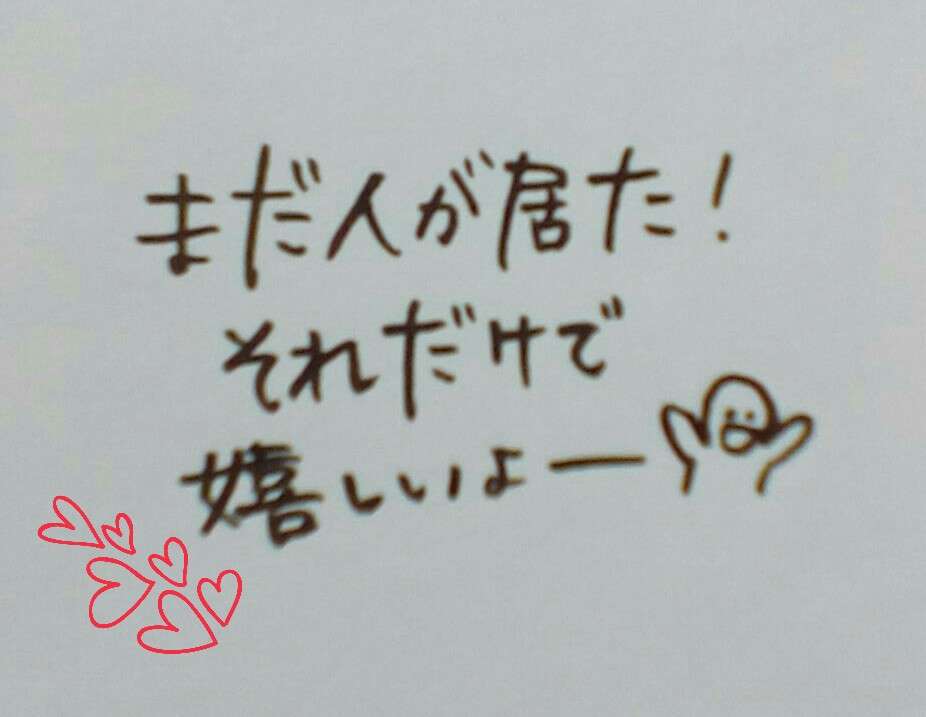 まだ人が居た!
それだけで
嬉しいよー